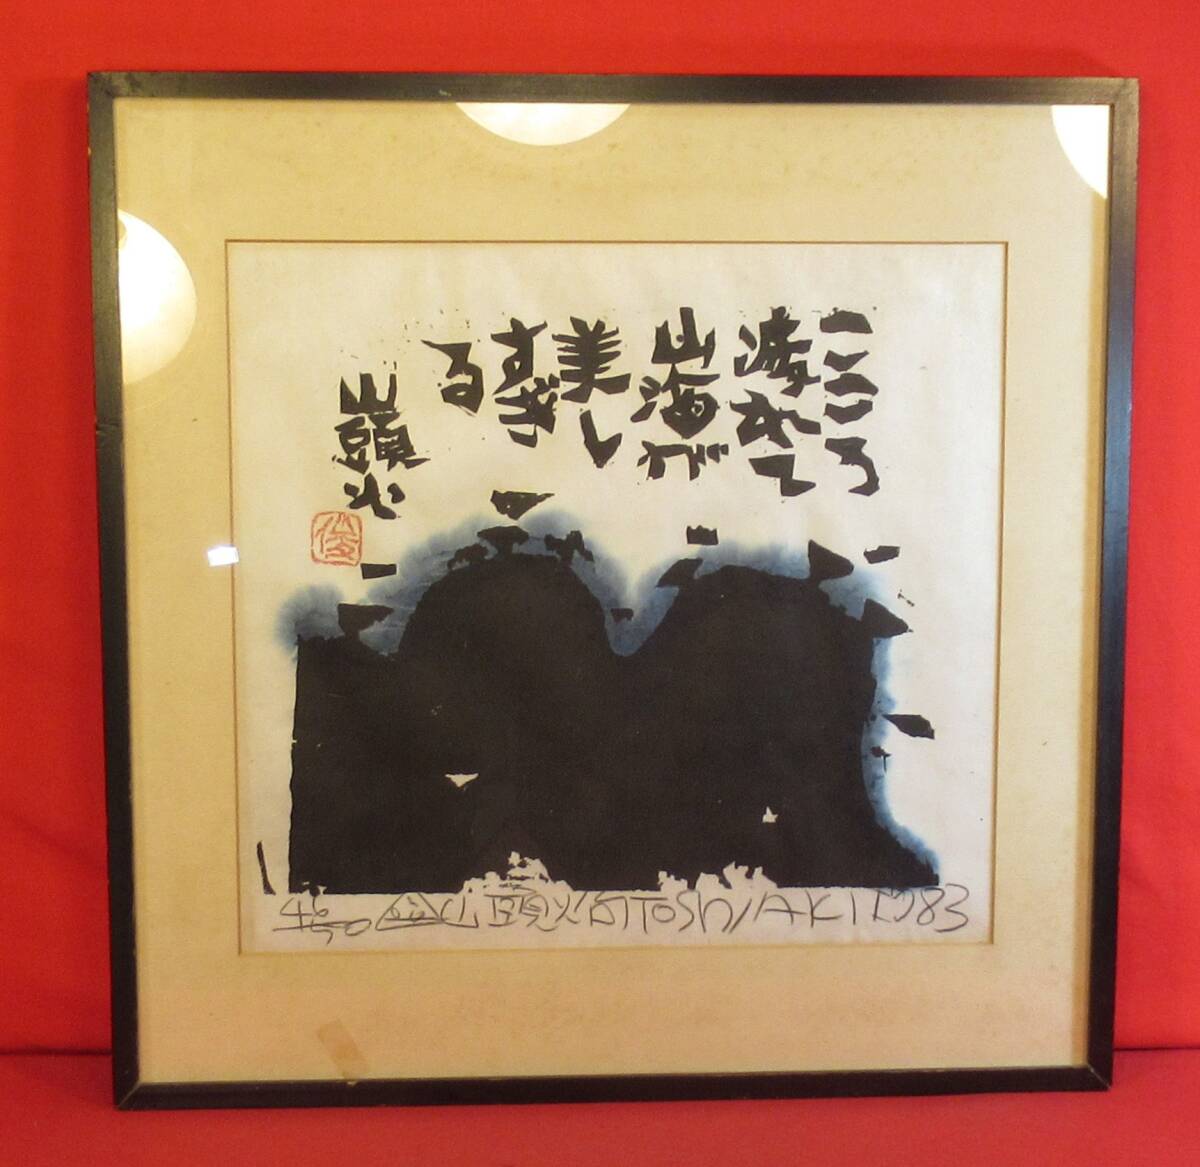 こころ
疲れて
山海が
美し
すぎ
る
山頭火
俊
山頭火 TOSHI/AKI 83